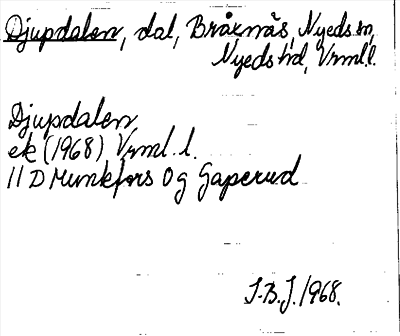 Djupdalen, dal, Bråtnäs, Nyeds sn,
Nyeds hd, Vrml.l.
Djupdalen
ek (1968) Vrml. l.
11 D Munkfors 0 g Gaperud
S.B.J. 1968.